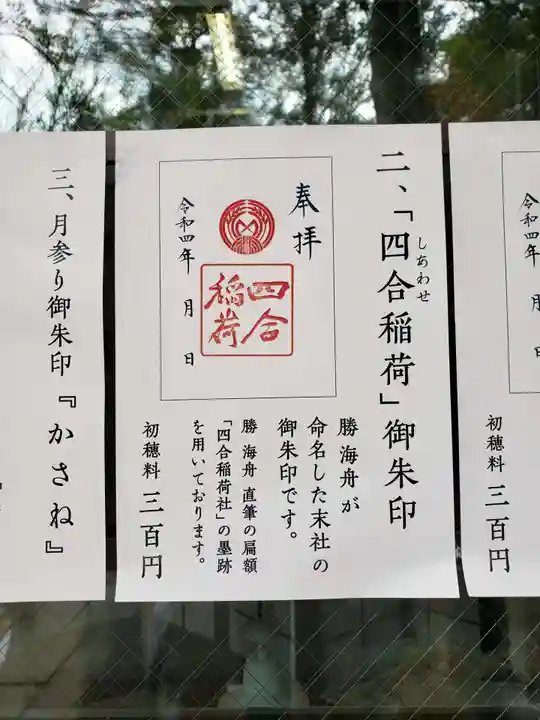 令和四年 月 日
初穂料 三百円
二、「四合稲荷」御朱印
しあわせ
奉拝
四合
稲荷
令和四年 月 日
勝 海舟が
命名した末社の
御朱印です。
勝 海舟 直筆の扁額
「四合稲荷社」の墨跡
を用いております。
初穂料 三百円
三、月参り御朱印『かさね』